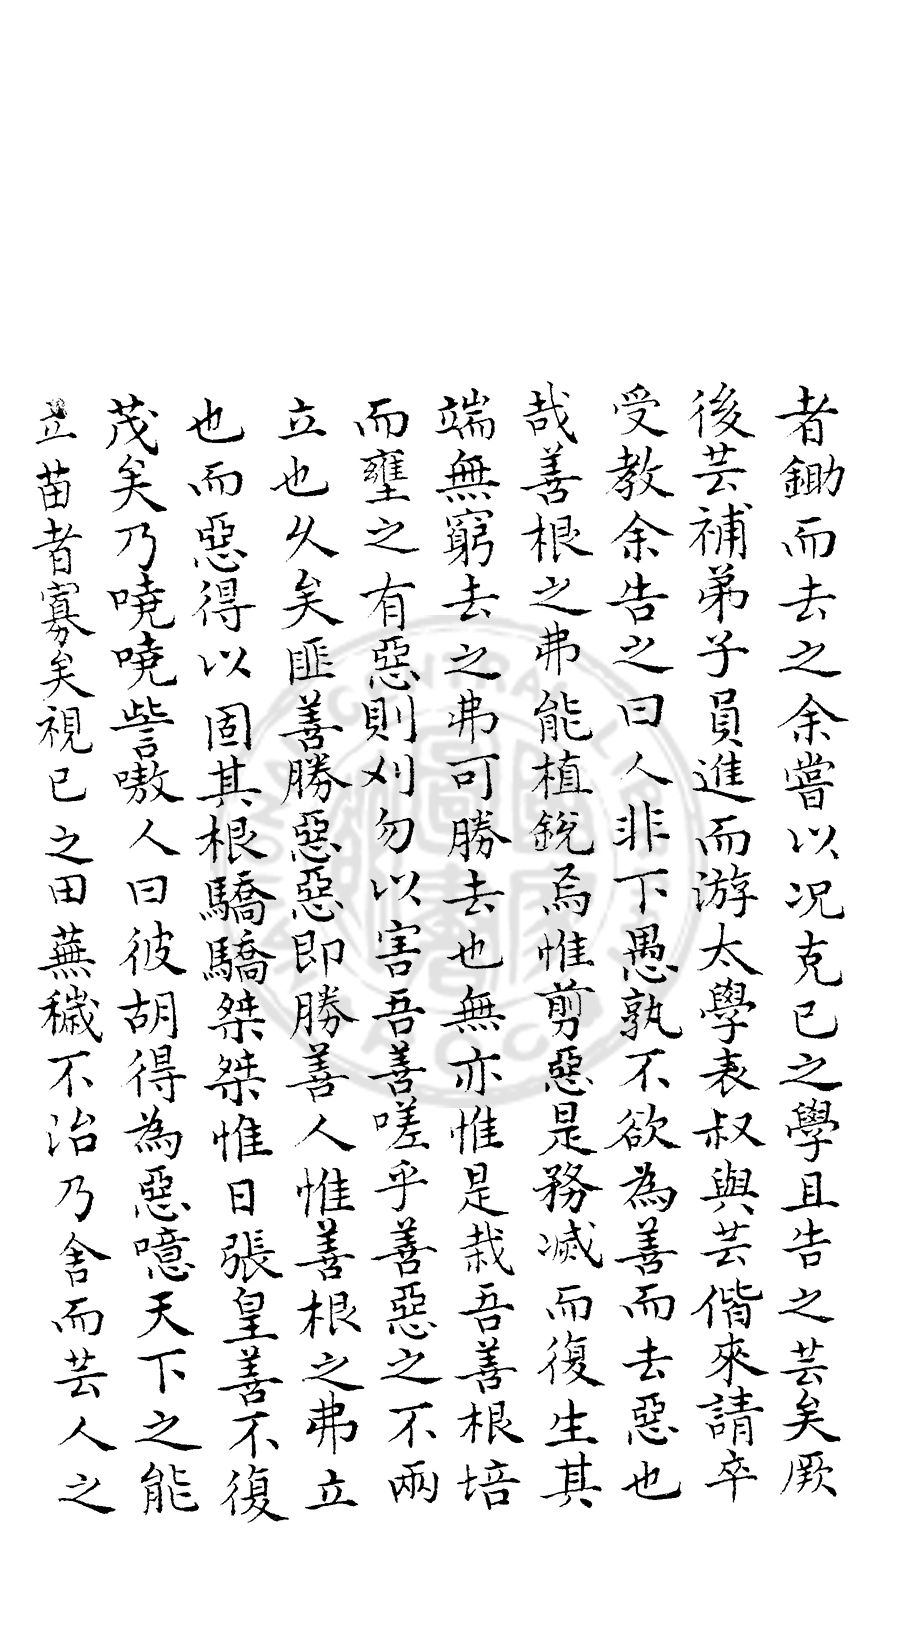 者鋤而去之余嘗以况克己之學且告之芸矣厥
後芸補弟子員進而游太學表叔與芸偕來請卒
受教余告之曰人非下愚孰不欲為善而去惡也
哉善根之弗能植銳焉惟剪惡是務滅而復生其
端無窮去之弗可勝去也無亦惟是栽吾善根培
而壅之有惡則刈勿以害吾善嗟乎善惡之不兩
立也久矣匪善勝惡惡即勝善人惟善根之弗立
也而惡得以固其根驕驕桀桀惟日張皇善不復
茂矣乃嘵嘵訾嗷人曰彼胡得為惡噫天下之能
立苗者寡矣視己之田蕪穢不治乃舍而芸人之